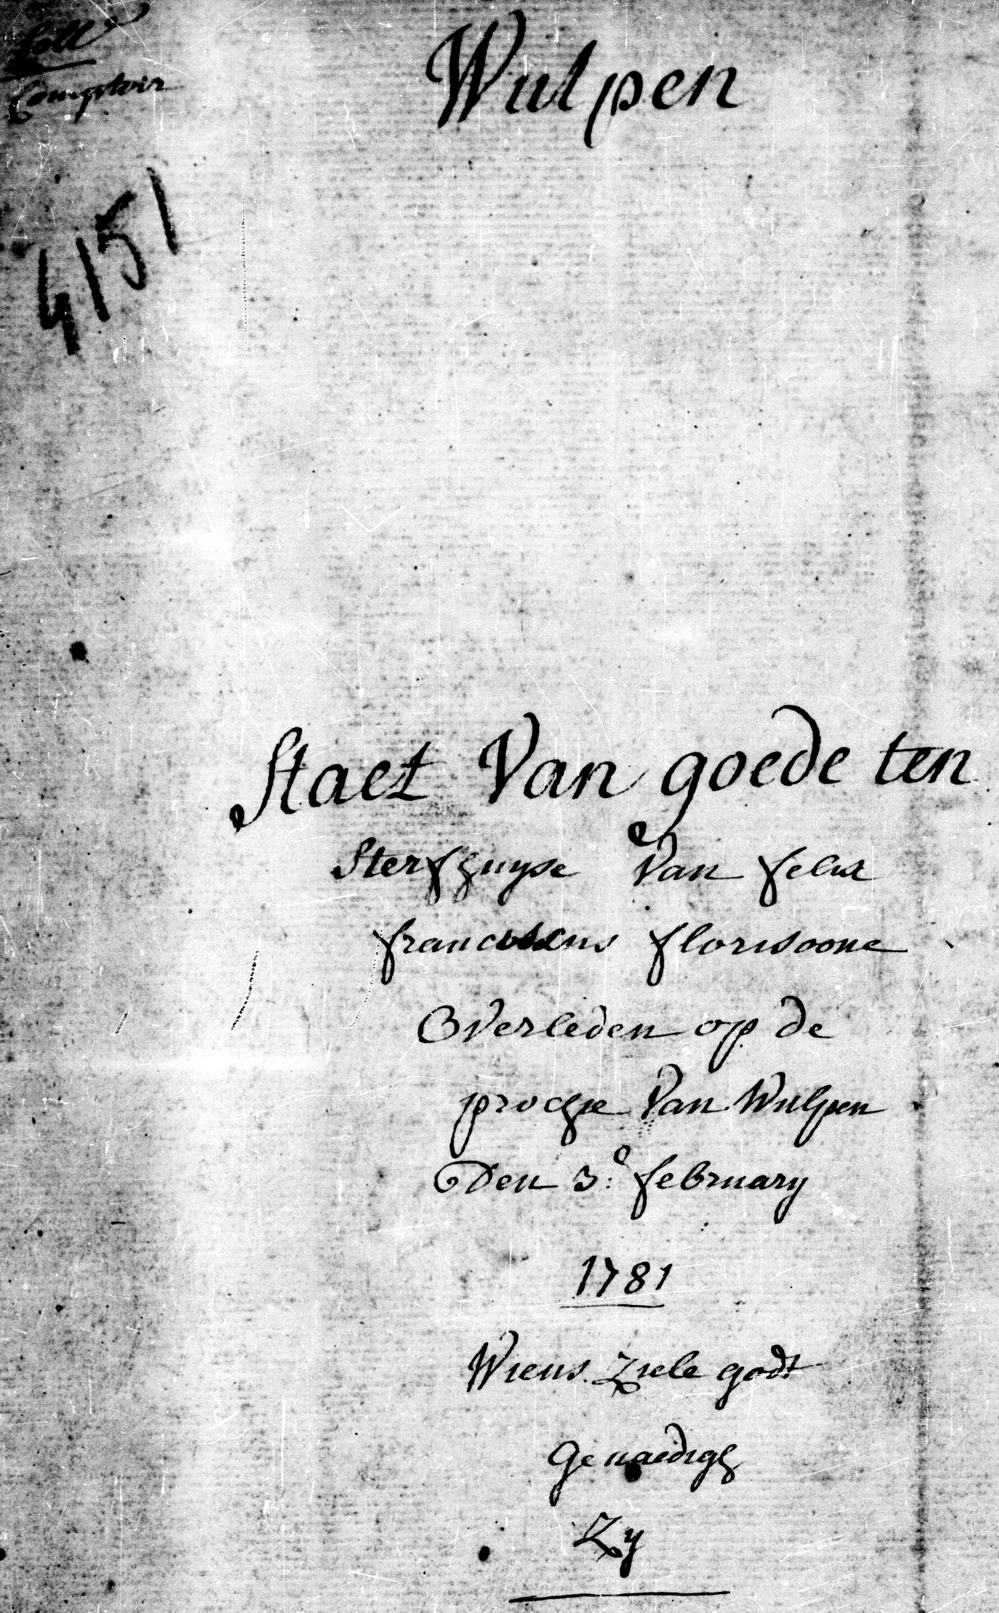 Coll
Comptoir
Wulpen
4151
Staet Van goede ten
Sterfhuyse Van felix
franciscus florisoone
Overleden op de
prochie Van Wulpen
Den 3.e february
1781
Wiens Ziele godt
Genaedigh
Zy